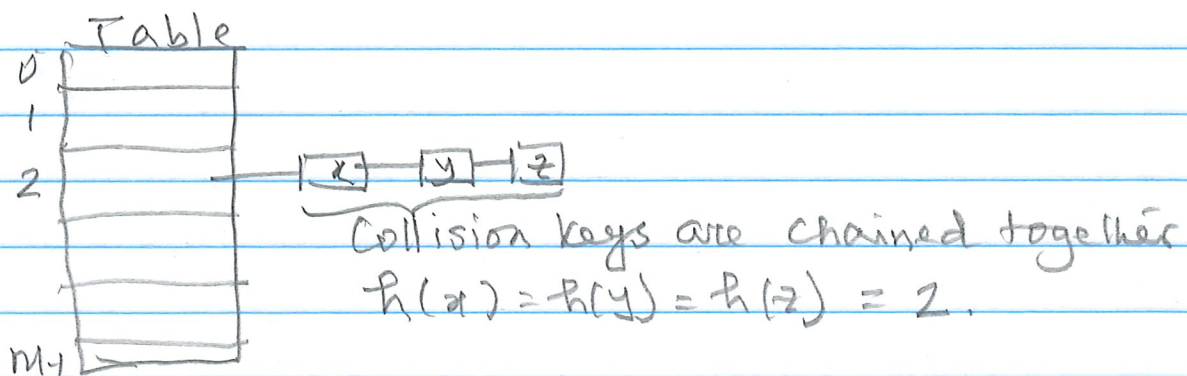 Table
0
1
2
x y z
Collision keys are chained together
h(x) = h(y) = h(z) = 2.
m-1